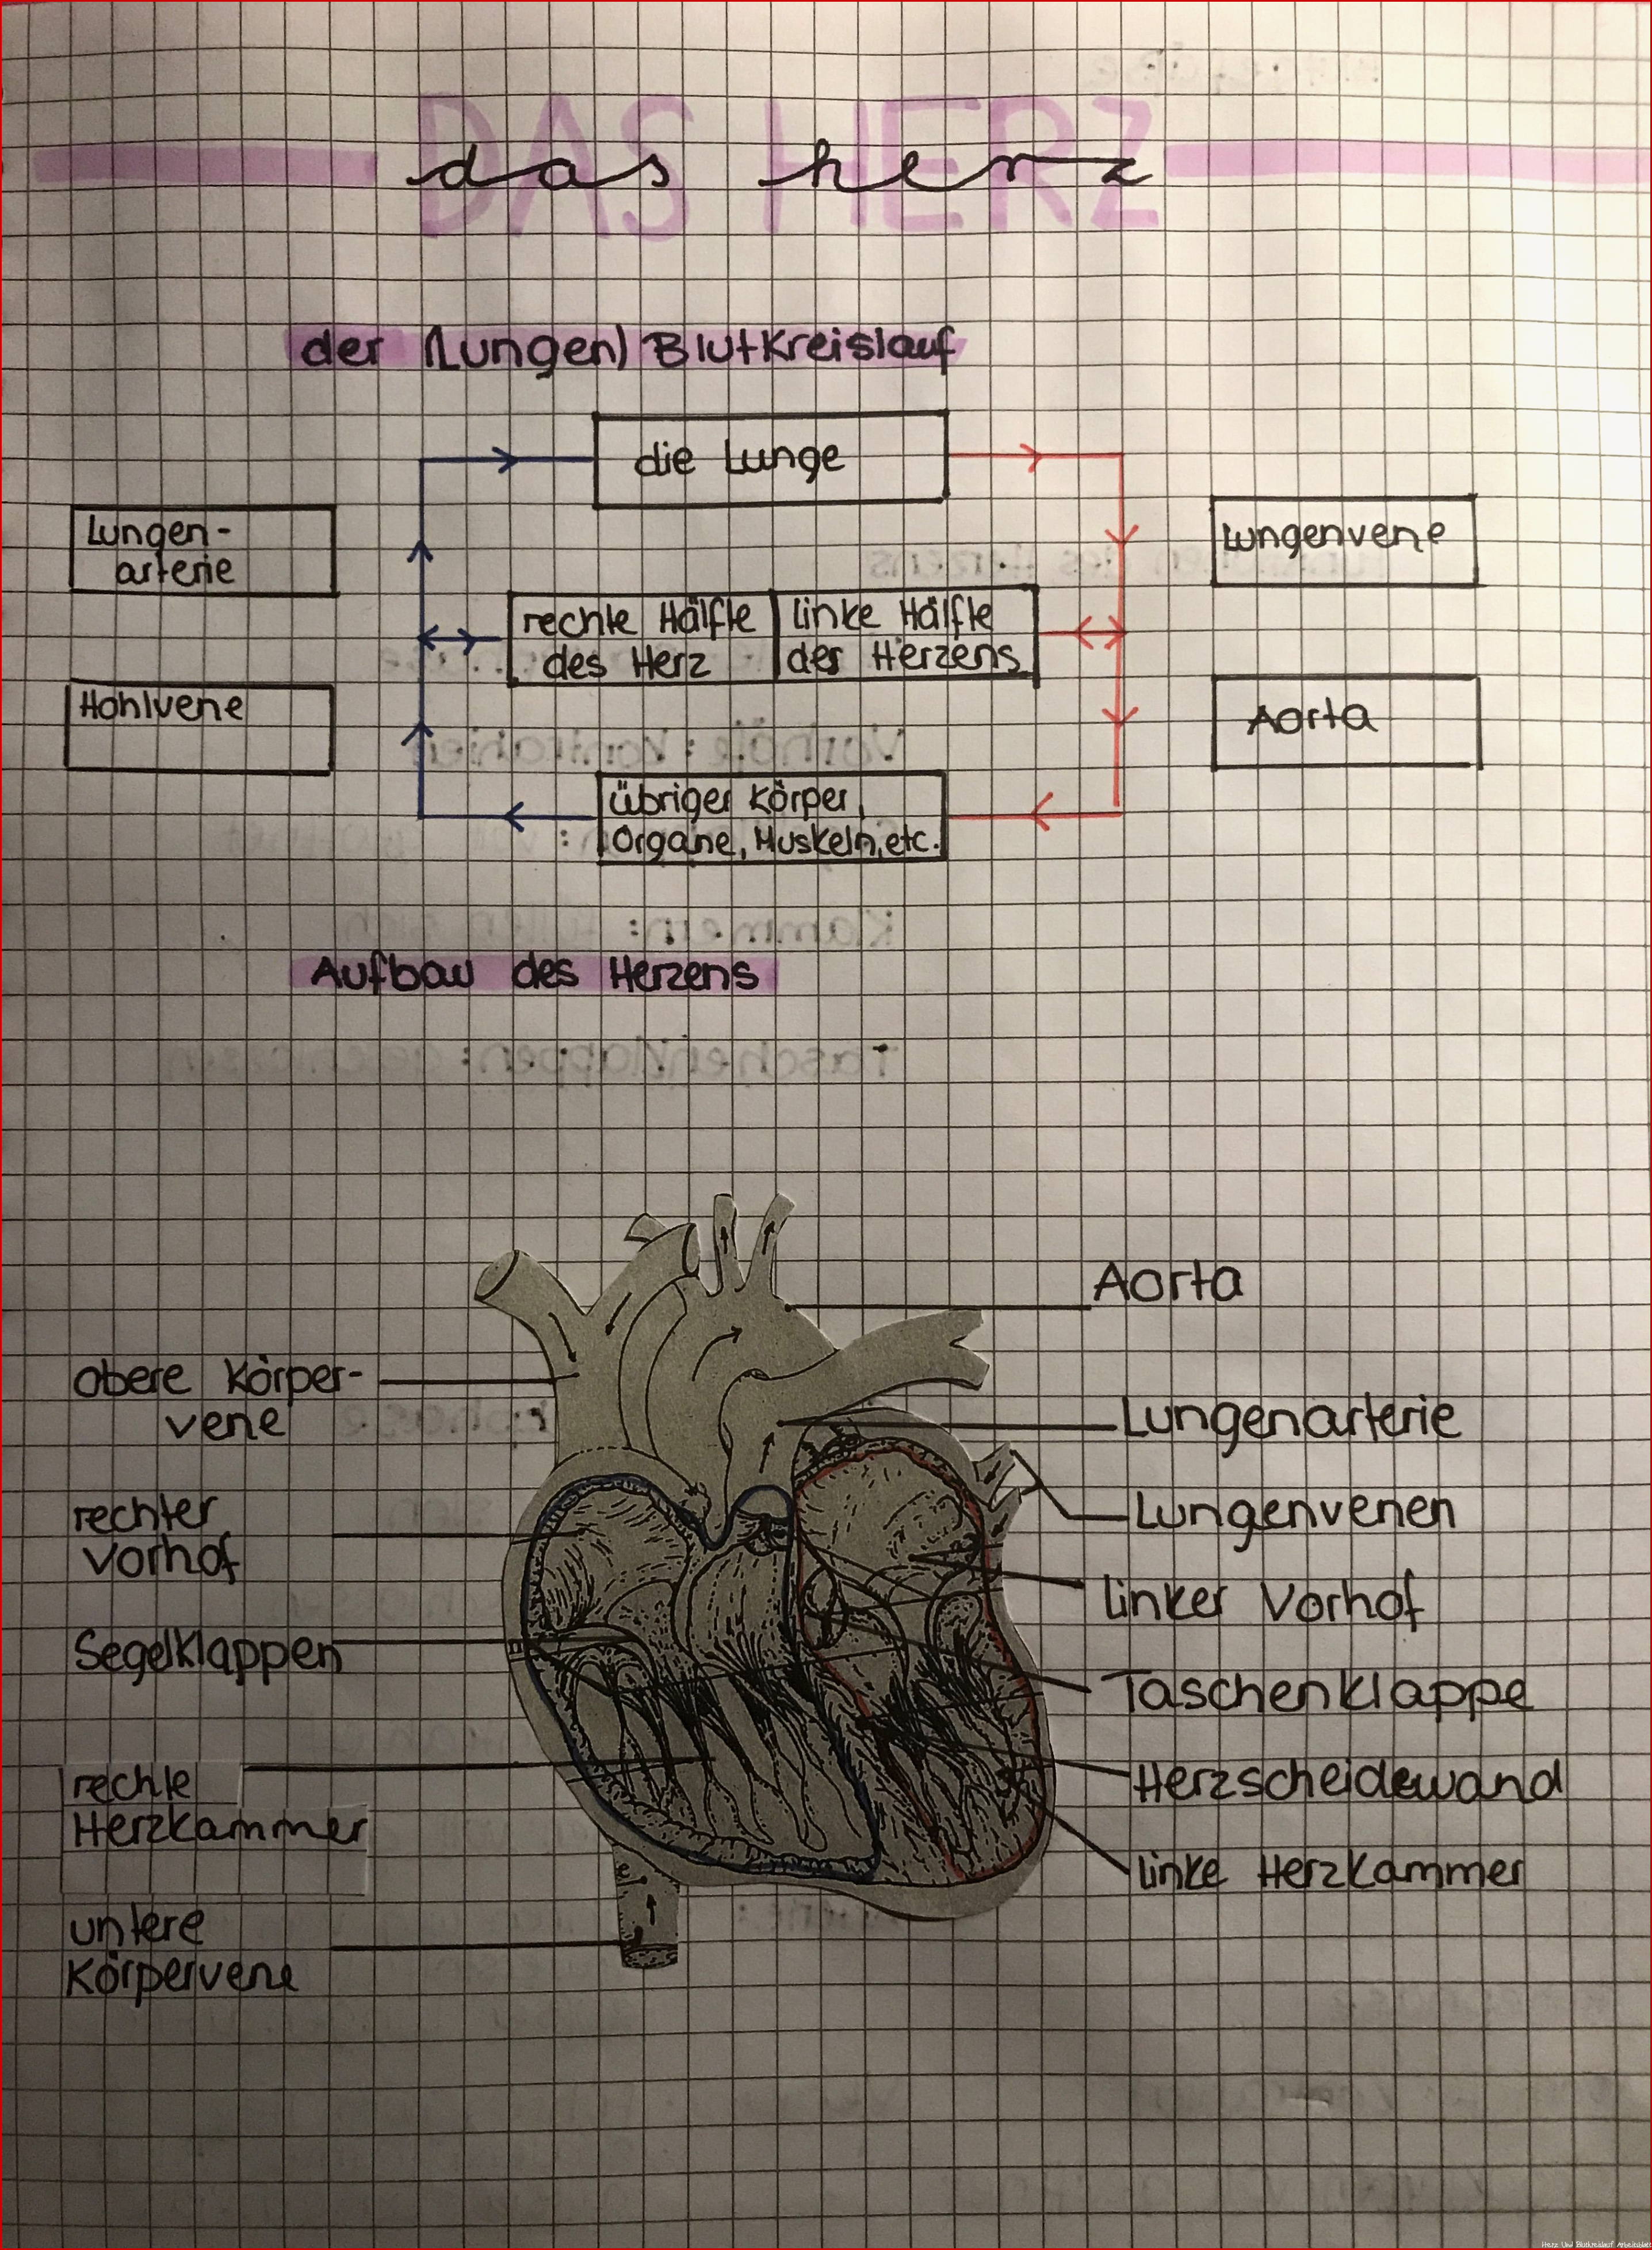 DAS HERZ
das herz
der (Lungen) Blutkreislauf
die Lunge
Lungen-
arterie
Lungenvene
rechte Hälfte
des Herz
linke Hälfte
des Herzens
Hohlvene
Aorta
übriger Körper,
Organe, Muskeln, etc.
Aufbau des Herzens
Aorta
obere Körper-
vene
Lungenarterie
rechter
Vorhof
Lungenvenen
linker Vorhof
Segelklappen
Taschenklappe
rechte
Herzkammer
Herzscheidewand
linke Herzkammer
untere
Körpervene
Herz Und Blutkreislauf